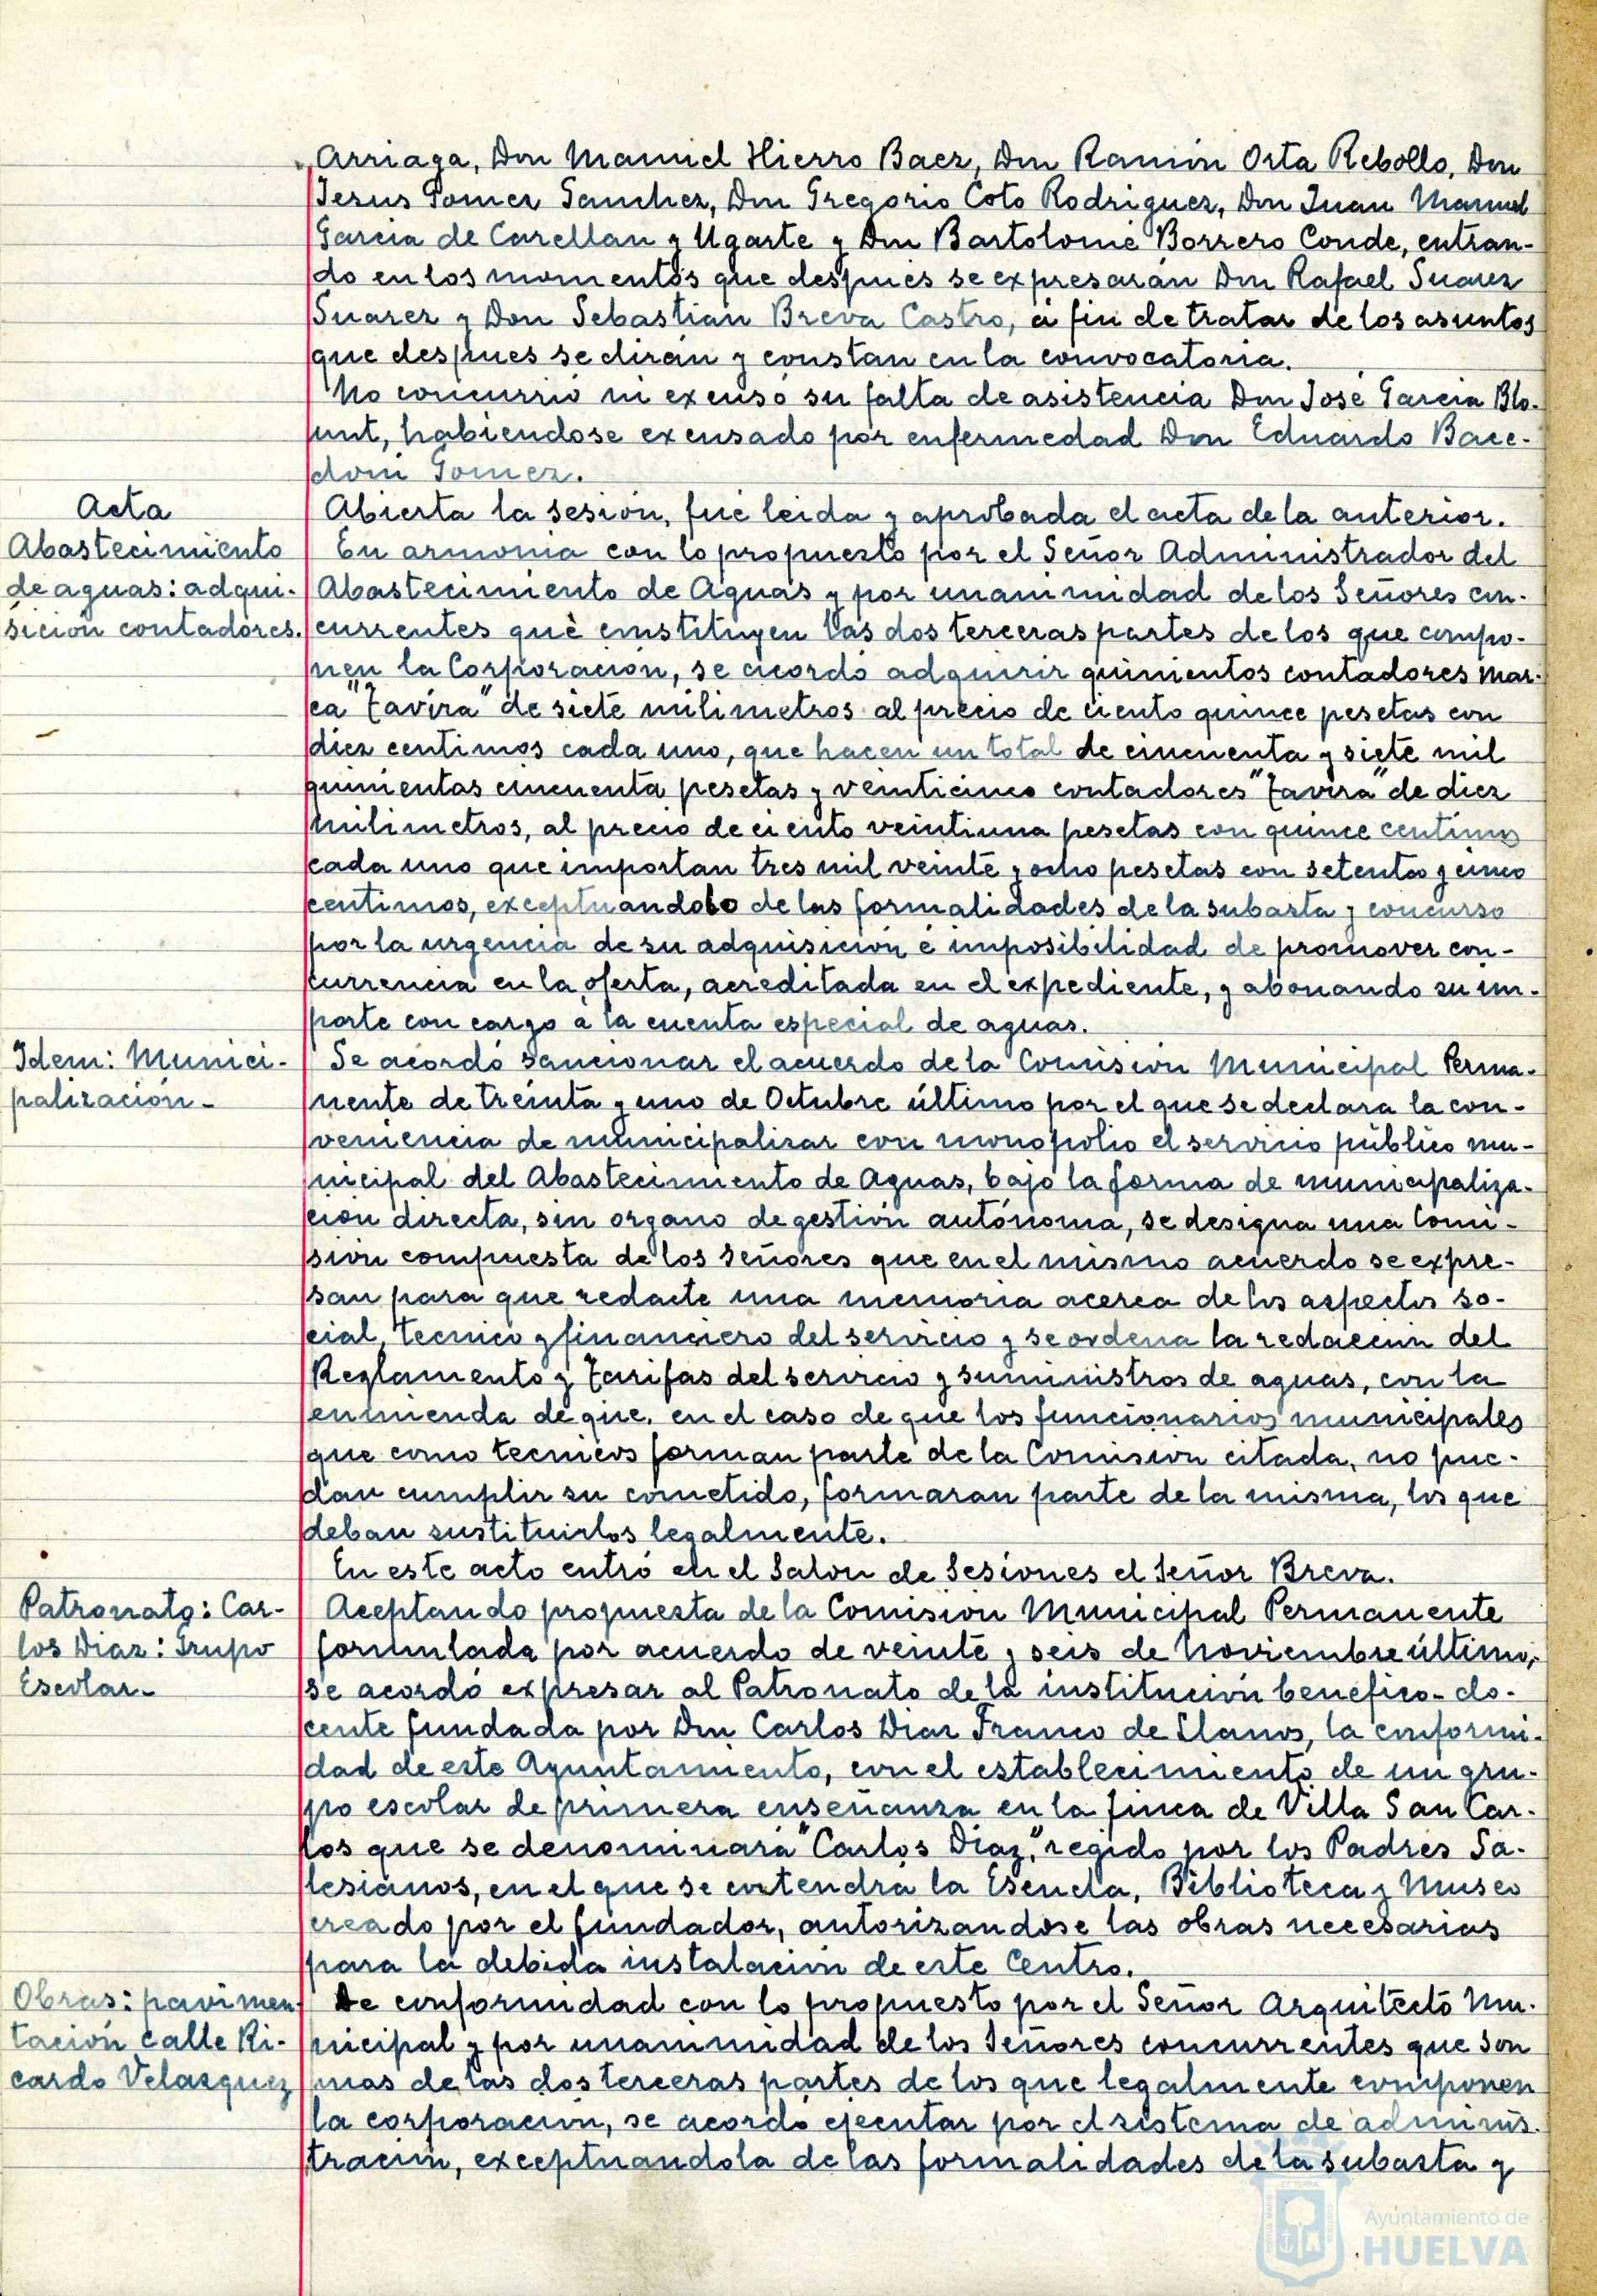 Arriaga, Don Manuel Hierro Baez, Don Ramón Orta Rebollo, Don
Jesus Gomez Sanchez, Don Gregorio Coto Rodriguez, Don Juan Manuel
Garcia de Carellan y Ugarte y Don Bartolomé Borrero Conde, entran-
do en los momentos que después se expresarán Don Rafael Suarez
Suarez y Don Sebastian Breva Castro, a fin de tratar de los asuntos
que despues se dirán y constan en la convocatoria.
No concurrió ni excusó su falta de asistencia Don José Garcia Blo-
unt, habiendose excusado por enfermedad Don Eduardo Bace-
doni Gomez.
Acta
Abierta la sesión, fué leida y aprobada el acta de la anterior.
Abastecimiento
de aguas: adqui-
sición contadores.
En armonia con lo propuesto por el Señor Administrador del
Abastecimiento de Aguas y por unanimidad de los Señores con-
currentes que constituyen las dos terceras partes de los que compo-
nen la Corporación, se acordó adquirir quinientos contadores mar-
ca "Tavira" de siete milimetros al precio de ciento quince pesetas con
diez centimos cada uno, que hacen un total de cincuenta y siete mil
quinientas cincuenta pesetas y veinticinco contadores "Tavira" de diez
milimetros, al precio de ciento veintiuna pesetas con quince centimos
cada uno que importan tres mil veinte y ocho pesetas con setenta y cinco
centimos, exceptuandolo de las formalidades de la subasta y concurso
por la urgencia de su adquisición é imposibilidad de promover con-
currencia en la oferta, acreditada en el expediente, y abonando su im-
porte con cargo a la cuenta especial de aguas.
Idem: Munici-
palización-
Se acordó sancionar el acuerdo de la Comisión Municipal Perma-
nente de treinta y uno de Octubre último por el que se declara la con-
veniencia de municipalizar con monopolio el servicio público mu-
nicipal del Abastecimiento de Aguas, bajo la forma de municipaliza-
ción directa, sin organo de gestión autónoma, se designa una Comi-
sión compuesta de los Señores que en el mismo acuerdo se expre-
san para que redacte una memoria acerca de los aspectos so-
cial, tecnico y financiero del servicio y se ordena la redacción del
Reglamento y Tarifas del servicio y suministros de aguas, con la
enmienda de que, en el caso de que los funcionarios municipales
que como tecnicos forman parte de la Comisión citada, no pue-
dan cumplir su cometido, formaran parte de la misma, los que
deban sustituirlos legalmente.
En este acto entró en el Salon de Sesiones el Señor Breva.
Patronato: Car-
los Diaz: Grupo
Escolar-
Aceptando propuesta de la Comisión Municipal Permanente
formulada por acuerdo de veinte y seis de Noviembre último,
se acordó expresar al Patronato de la institución benefico-do-
cente fundada por Don Carlos Diaz Franco de Llanos, la conformi-
dad de este Ayuntamiento, con el establecimiento de un gru-
po escolar de primera enseñanza en la finca de Villa San Car-
los que se denominará "Carlos Diaz," regido por los Padres Sa-
lesianos, en el que se contendrá la Escuela, Biblioteca y Museo
creado por el fundador, autorizandose las obras necesarias
para la debida instalación de este Centro.
Obras: pavimen-
tación calle Ri-
cardo Velazquez
De conformidad con lo propuesto por el Señor Arquitecto Mu-
nicipal y por unanimidad de los Señores concurrentes que son
mas de las dos terceras partes de los que legalmente componen
la corporación, se acordó ejecutar por el sistema de adminis-
tración, exceptuandola de las formalidades de la subasta y
Ayuntamiento de
HUELVA